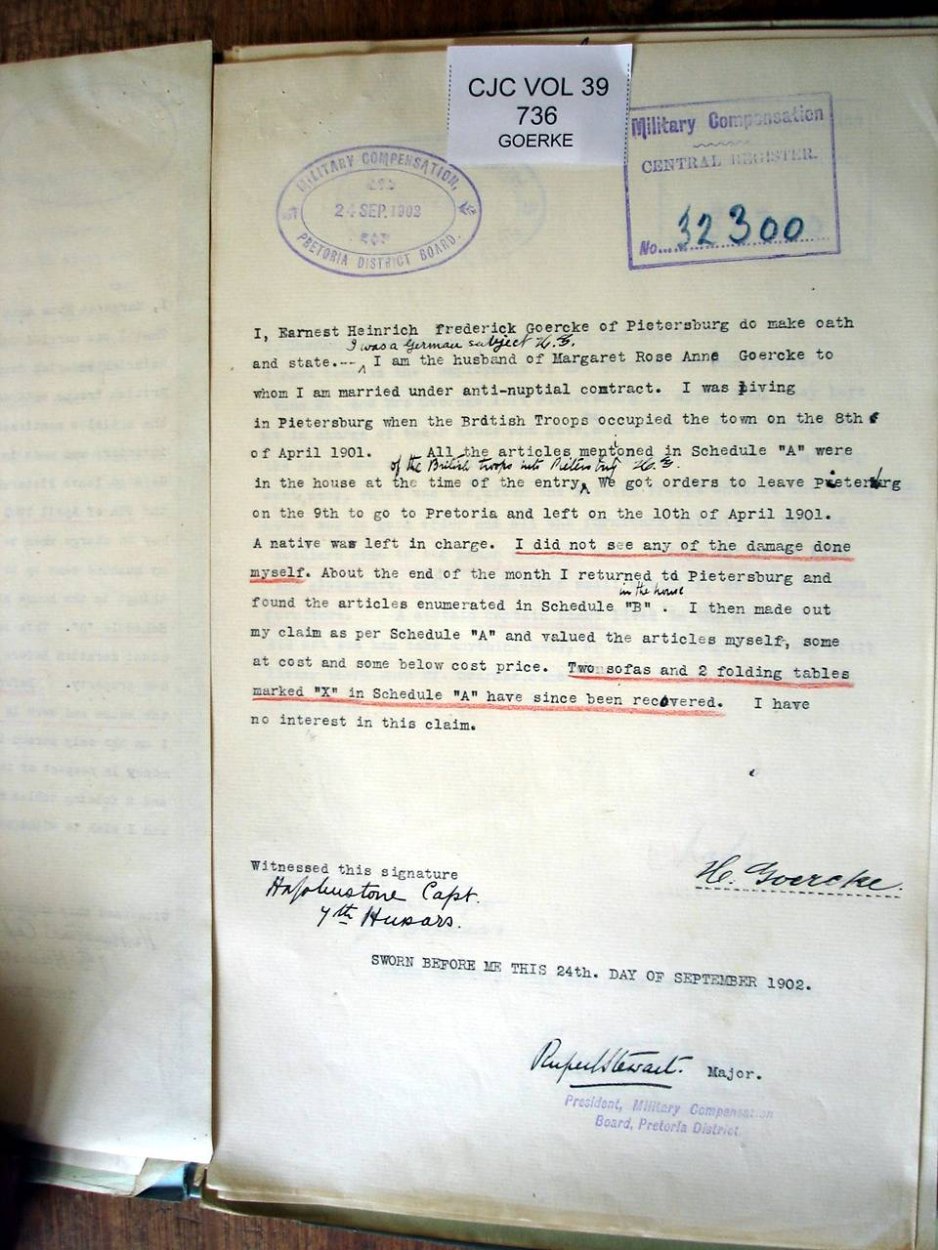 CJC VOL 39
736
GOERKE
MILITARY COMPENSATION,
24 SEP. 1902
PRETORIA DISTRICT BOARD.
Military Compensation
CENTRAL REGISTER.
No. 32300
I, Earnest Heinrich frederick Goercke of Pietersburg do make oath
I was a German subject H.G.
and state.--- I am the husband of Margaret Rose Anne Goercke to
whom I am married under anti-nuptial contract. I was living
in Pietersburg when the British Troops occupied the town on the 8th
of April 1901. All the articles mentioned in Schedule "A" were
of the British troops into Pietersburg H.G.
in the house at the time of the entry, We got orders to leave Pietersburg
on the 9th to go to Pretoria and left on the 10th of April 1901.
A native was left in charge. I did not see any of the damage done
myself. About the end of the month I returned to Pietersburg and
in the house
found the articles enumerated in Schedule "B". I then made out
my claim as per Schedule "A" and valued the articles myself, some
at cost and some below cost price. Two sofas and 2 folding tables
marked "X" in Schedule "A" have since been recovered. I have
no interest in this claim.
H. Goercke.
Witnessed this signature
HAJohnstone Capt.
7th Husars.
SWORN BEFORE ME THIS 24th. DAY OF SEPTEMBER 1902.
Rupert Stewart. Major.
President, Military Compensation
Board, Pretoria District.